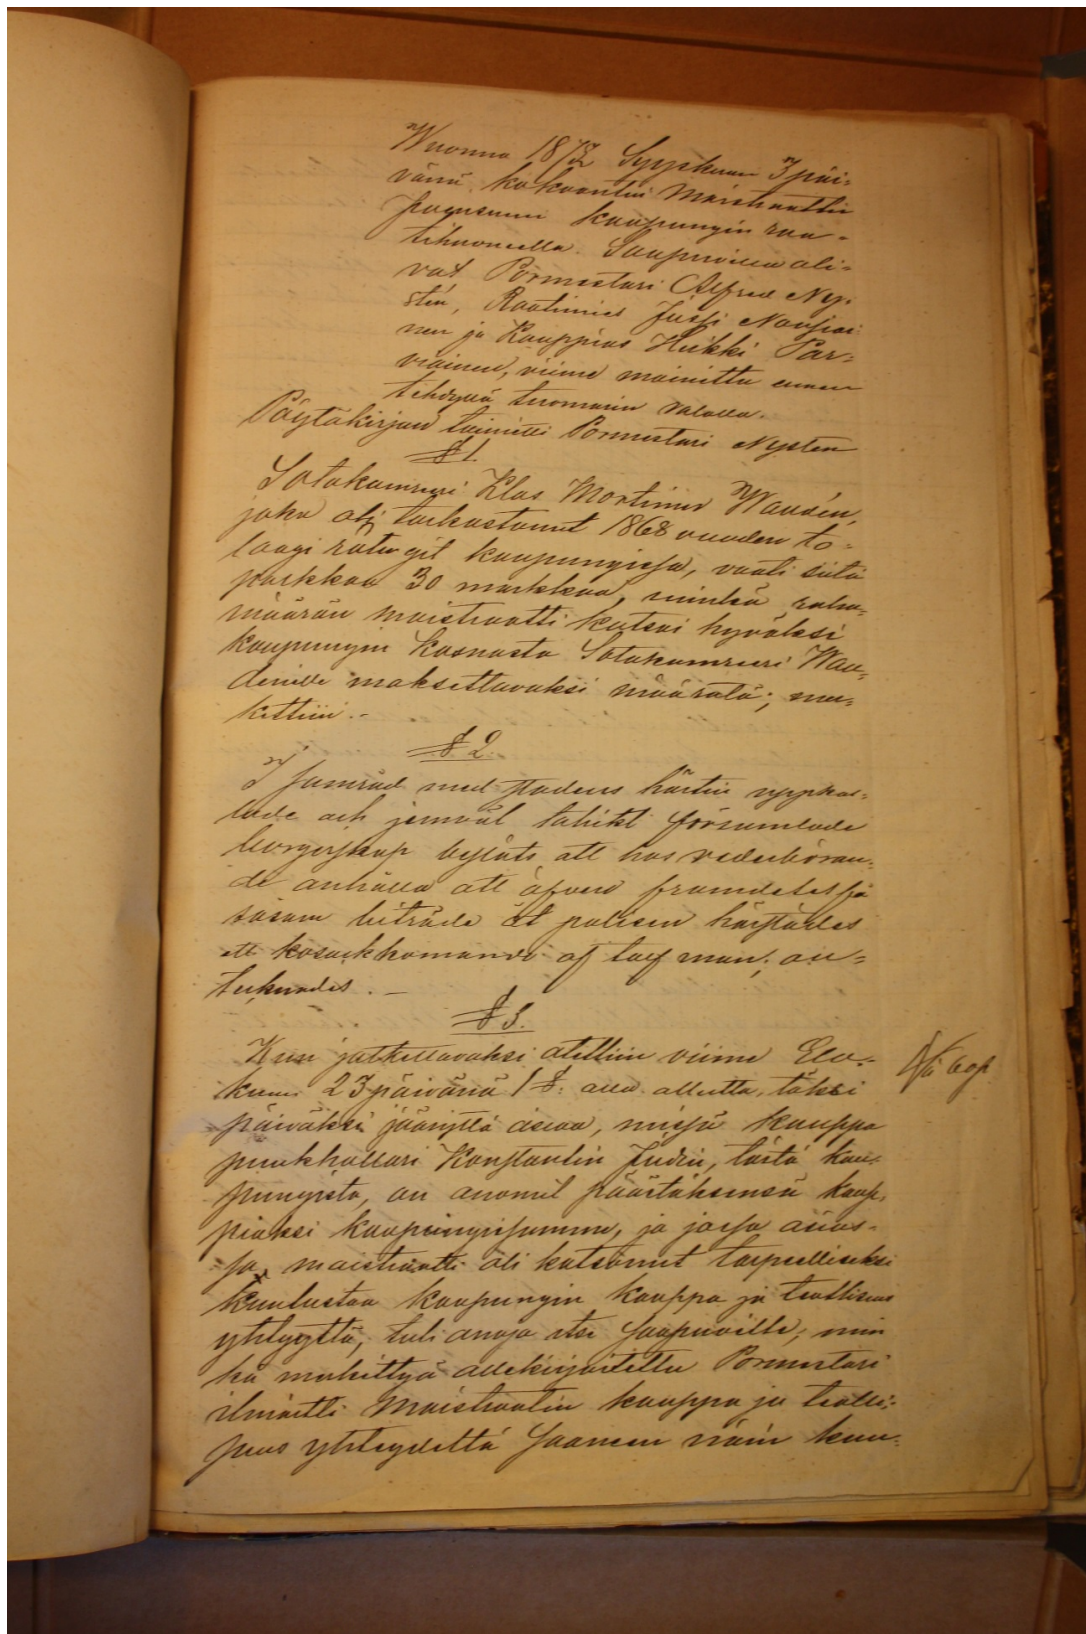 Wuonna 1872 Syyskuun 3 päi-
vänä kokoontui Maistraatti
Joensuun kaupungin raa-
tihuoneella. Saapuvilla oli-
vat Pormestari Alfred Ny-
stén, Raatimies Jussi Nousiai-
nen ja Kauppias Heikki Par-
viainen, viime mainittu ennen
tehdyllä tuomarin valalla.
Pöytäkirjaa toimitti Pormestari Nystén
§ 1.
Sotakamreri Klas Mortimer Wandén,
joka oli tarkastanut 1868 vuoden to-
laagi rätingit kaupungissa, vaati siitä
palkkaa 30 markkaa, minkä raha-
määrän maistraatti katsoi hyväksi
kaupungin kasnasta Sotakamreeri Wan-
denille maksettavaksi määrätä; mer-
kittiin.-
§ 2.
I samråd med stadens härtill uppkal-
lade och jemväl talrikt församlade
borgerskap beslöts att hos vederböran-
de anhålla att äfven framdeles få
såsom biträde åt polisen härstädes
ett kosackkomando af tolf man; an-
tecknades. -
§ 3.
Kun jatkettavaksi otettiin viime Elo-
kuun 23 päivänä 1 §: alla alkutta, täksi
päiväksi jäänyttä asiaa, missä kauppa
puukhollari Konstantin Judin, tästä kau-
pungista, on anonut päästäksensä kaup-
piaksi kaupungissamme, ja jossa asias-
sa maistraatti oli katsonut tarpeelliseksi
kuulustaa kaupungin kauppa ja teollisuus
yhtyyttä, tuli anoja itse saapuville; min
kä merkittyä allekirjoitettu Pormestari
ilmoitti Maistraatin kauppa ja teolli-
suus yhteydeltä saaneen näin kuu-
60 p.